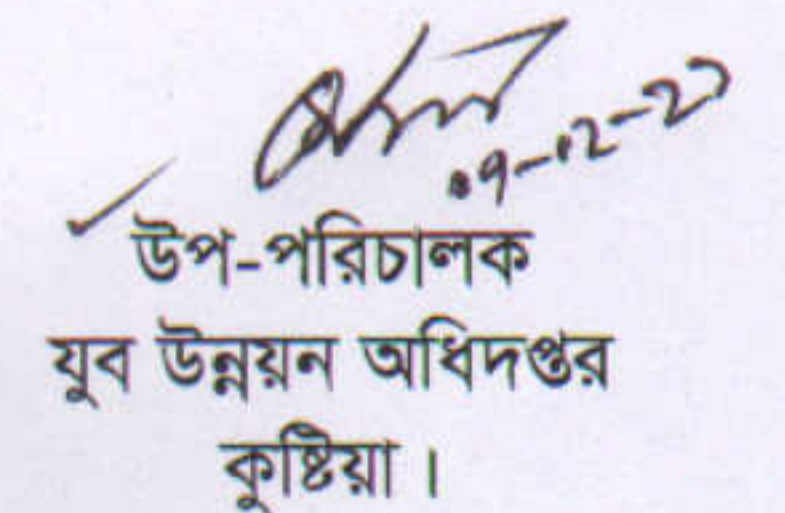 উপ-পরিচালক
যুব উন্নয়ন অধিদপ্তর
কুষ্টিয়া।